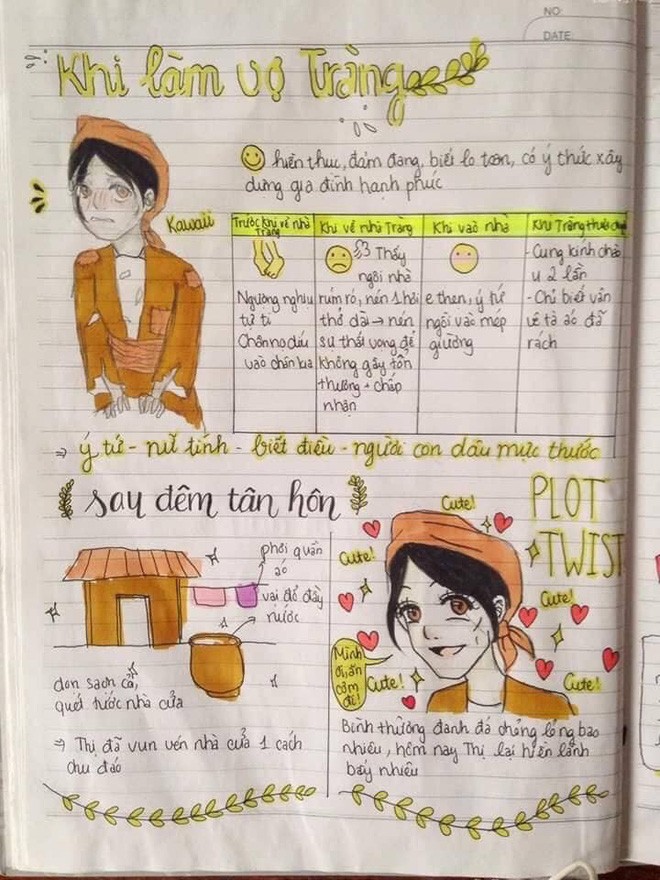 NO
DATE
Khi làm vợ Tràng
hiền thục, đảm đang, biết lo toan, có ý thức xây
dựng gia đình hạnh phúc
Kawaii
Trước khi về nhà
Tràng
Ngượng nghịu
tự ti
Chân nọ díu
vào chân kia
Khi về nhà Tràng
Thấy
ngôi nhà
rúm ró, nén 1 hơi
thở dài → nén
sự thất vọng để
không gây tổn
thương + chấp
nhận
Khi vào nhà
e thẹn, ý tứ
ngồi vào mép
giường
Khi Tràng thưa
- Cung kính chào
u 2 lần
- Chỉ biết vân
vê tà áo đã
rách
⇒ ý tứ - nữ tính - biết điều - người con dâu mực thước
say đêm tân hôn
phơi quần
áo
vại đổ đầy
nước
dọn sạch cỏ,
quét tước nhà cửa
⇒ Thị đã vun vén nhà cửa 1 cách
chu đáo
PLOT
TWIST
Cute!
Cute!
Cute!
Mình
ơi, ăn
cơm
đi!
Cute!
Cute!
Bình thường đanh đá chỏng lỏng bao
nhiêu, hôm nay Thị lại hiền lành
bấy nhiêu